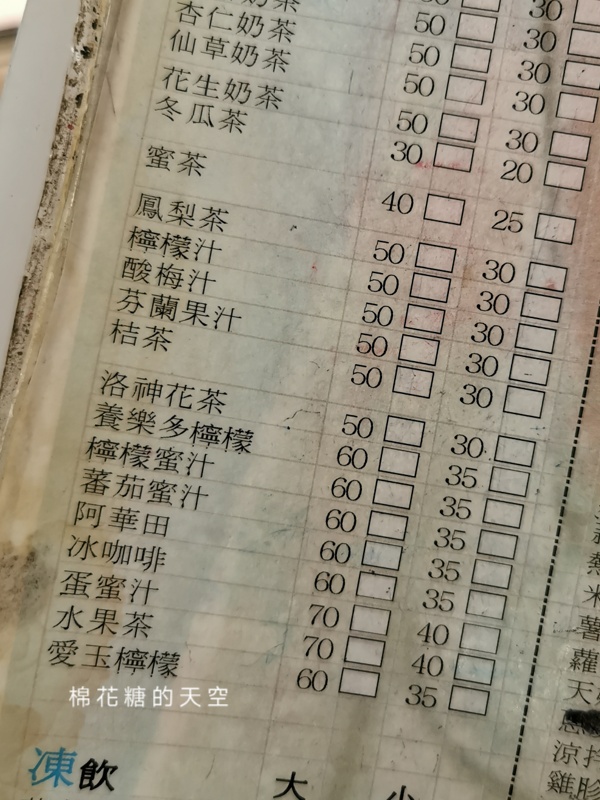 奶茶 50 30
杏仁奶茶 50 30
仙草奶茶 50 30
花生奶茶 50 30
冬瓜茶 30 20
蜜茶 40 25
鳳梨茶 50 30
檸檬汁 50 30
酸梅汁 50 30
芬蘭果汁 50 30
桔茶 50 30
洛神花茶 50 30
養樂多檸檬 60 35
檸檬蜜汁 60 35
蕃茄蜜汁 60 35
阿華田 60 35
冰咖啡 60 35
蛋蜜汁 70 40
水果茶 70 40
愛玉檸檬 60 35
棉花糖的天空
凍飲 大 小
熱
米
薯
蘿
天
涼拌
雞